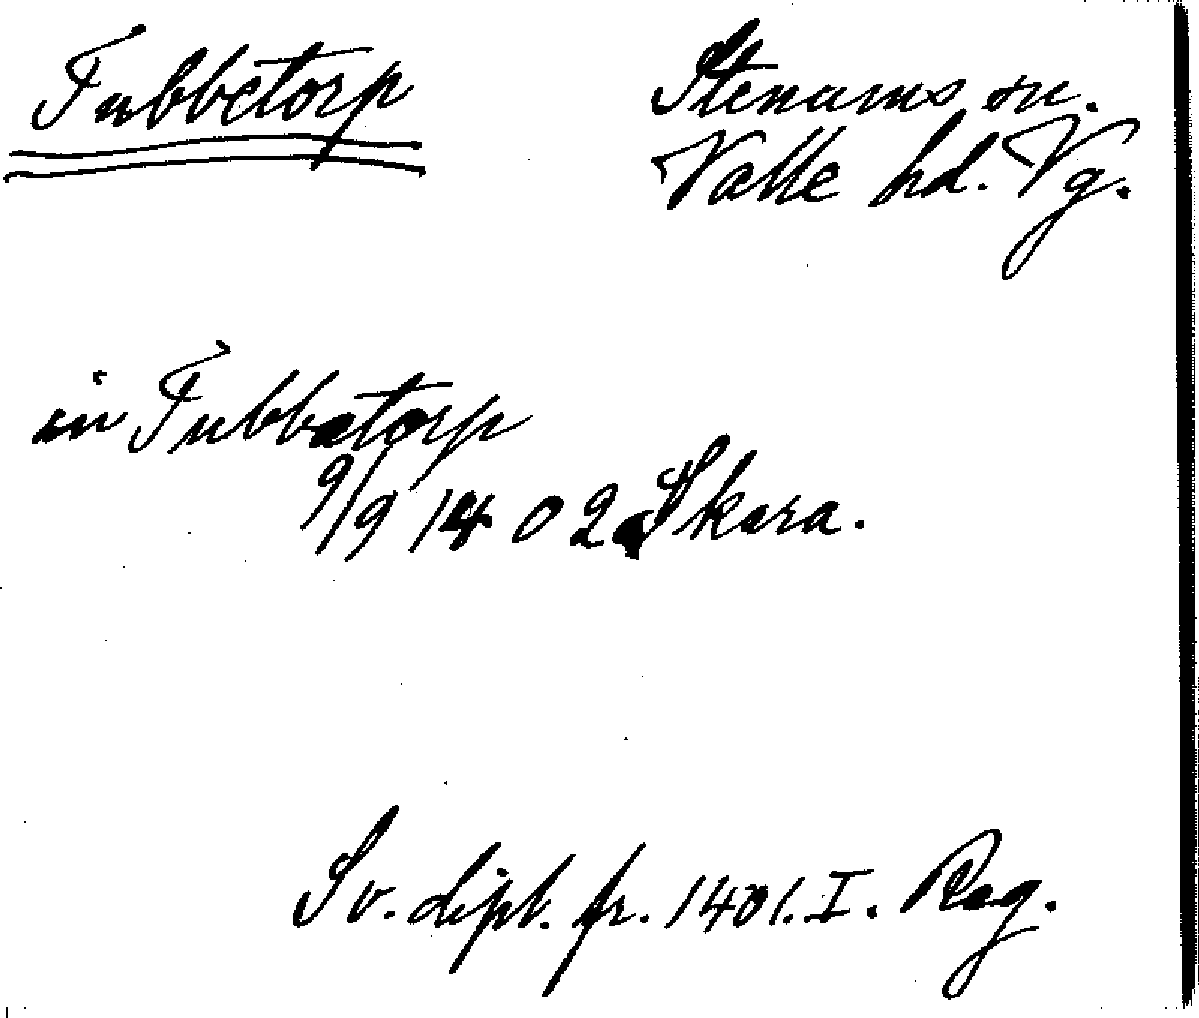 Tubbetorp
Stenums sn.
Valle hd. Vg.
in Tubbatorp
9/9 1402 Skara.
Sv. dipl. fr. 1401. I. Reg.